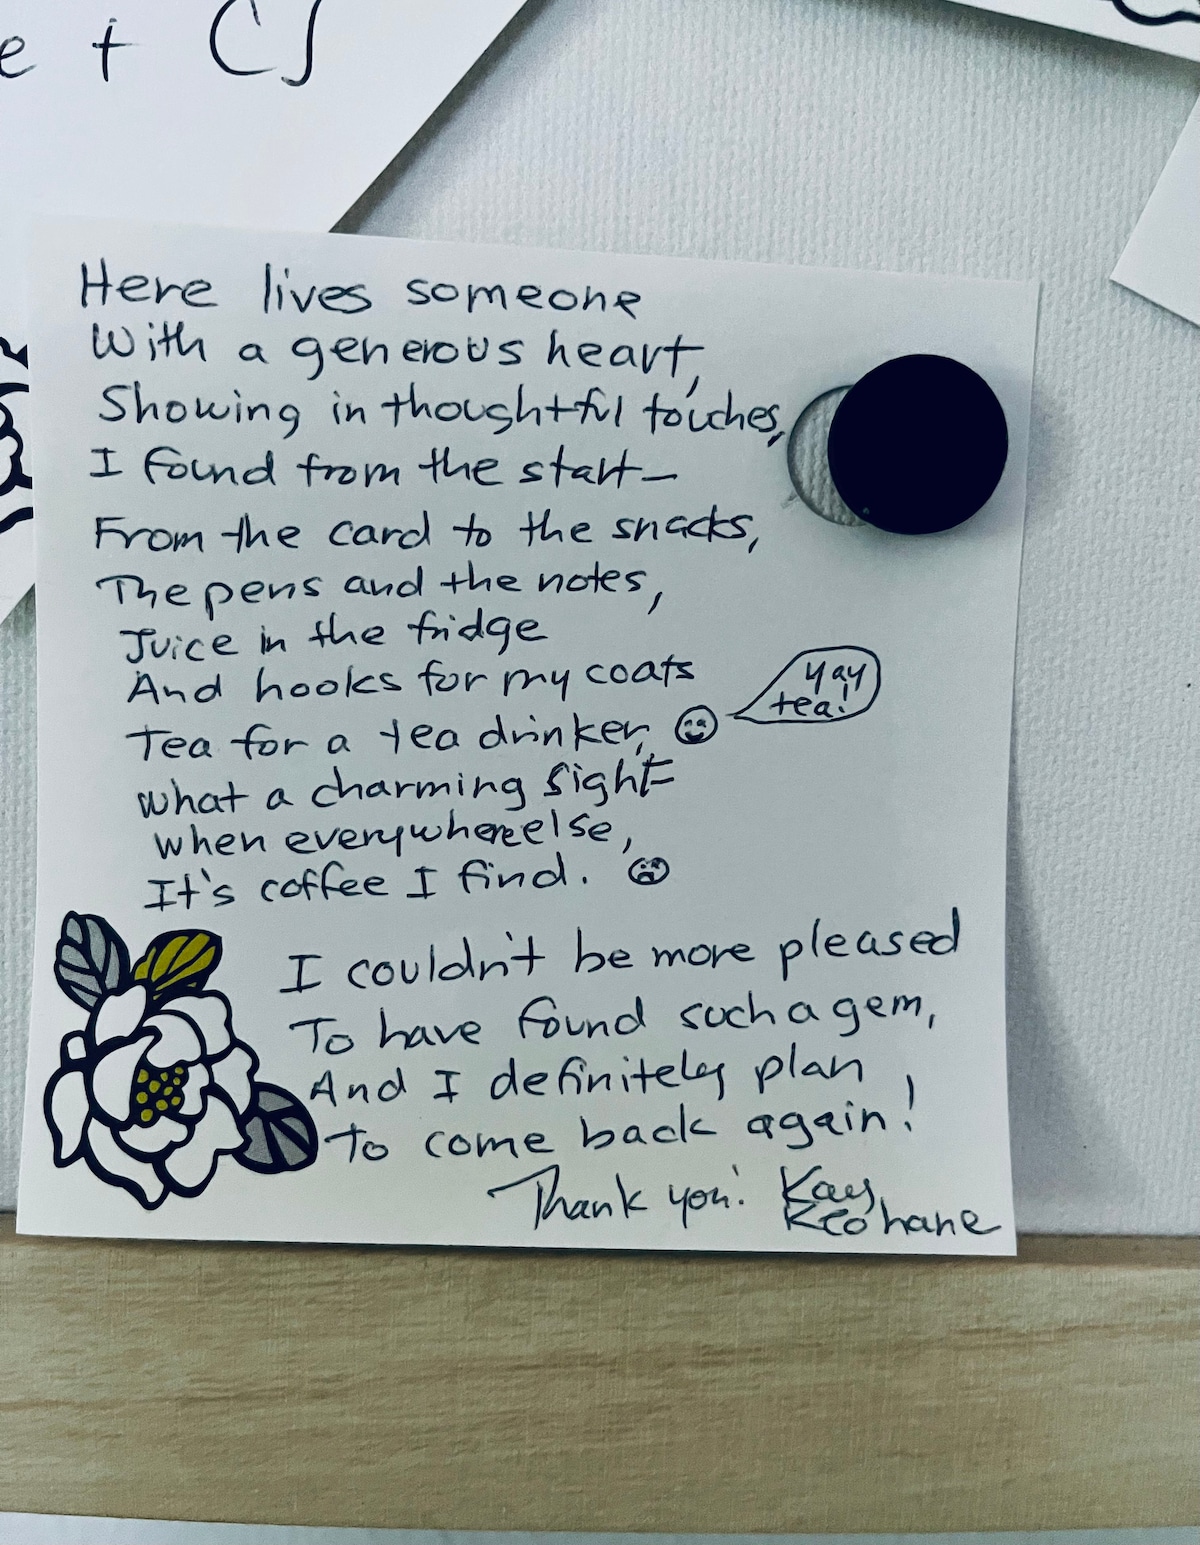 e + CJ
Here lives someone
With a generous heart,
Showing in thoughtful touches,
I found from the start—
From the card to the snacks,
The pens and the notes,
Juice in the fridge
And hooks for my coats
Tea for a tea drinker,
yay
tea!
what a charming sight—
when everywhere else,
It's coffee I find.
I couldn't be more pleased
To have found such a gem,
And I definitely plan
To come back again!
Thank you! Kay
Keohane